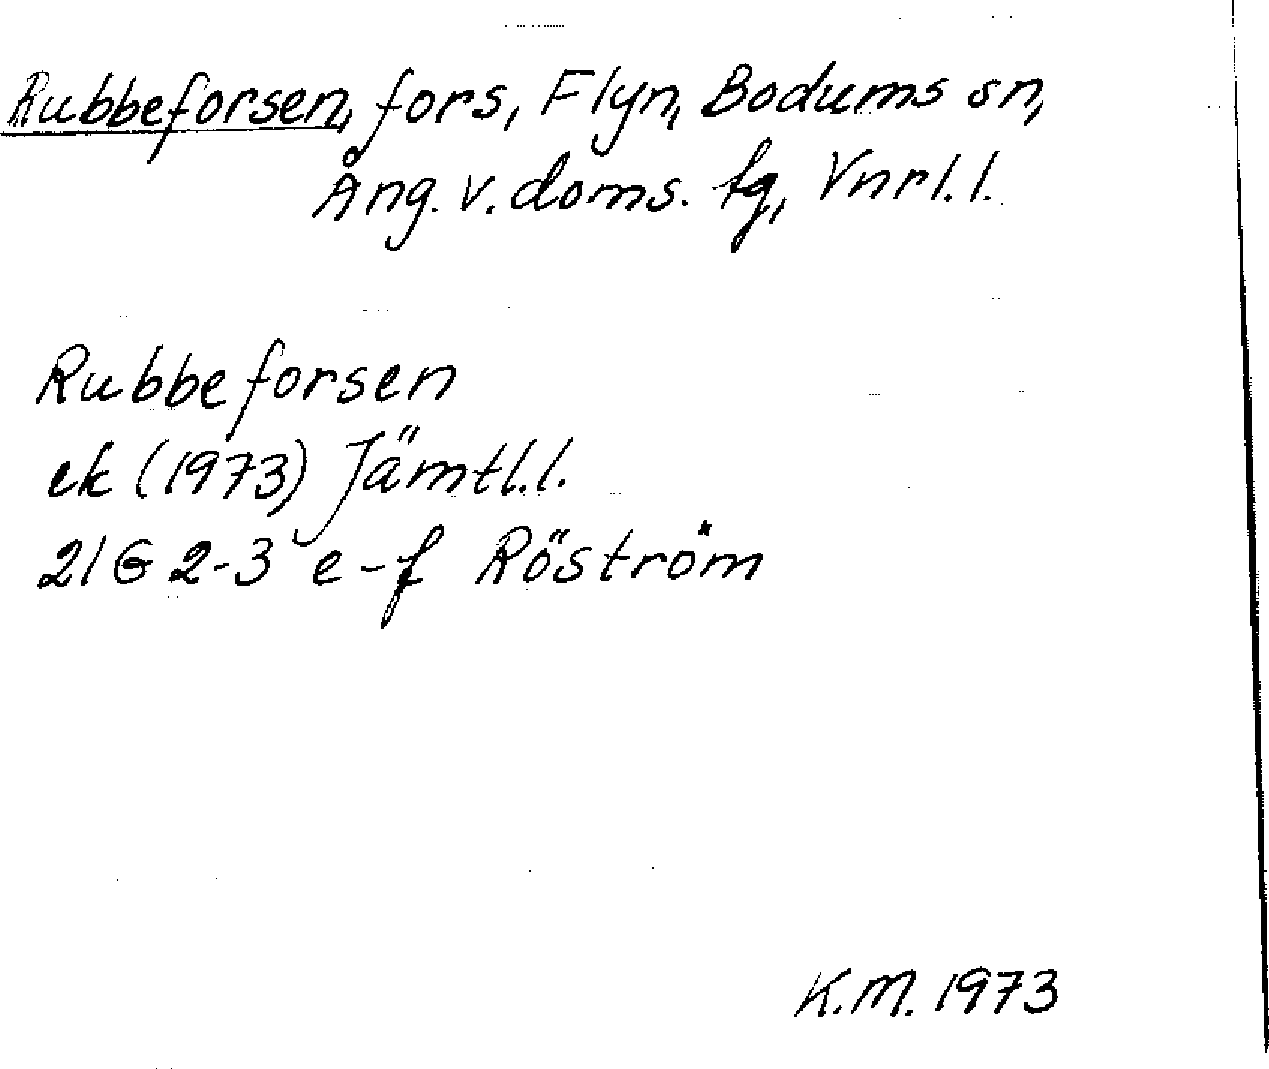 Rubbeforsen, fors, Flyn, Bodums sn,
Ång. v. doms. tg, Vnrl. l.
Rubbeforsen
ek (1973) Jämtl. l.
21G 2-3 e-f Röström
K.M. 1973